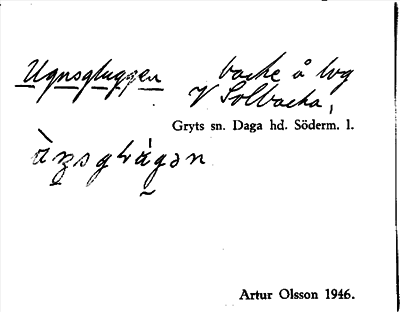 Ugnsgluggen backe å lvg
V Solbacka,
Gryts sn. Daga hd. Söderm. l.
Artur Olsson 1946.